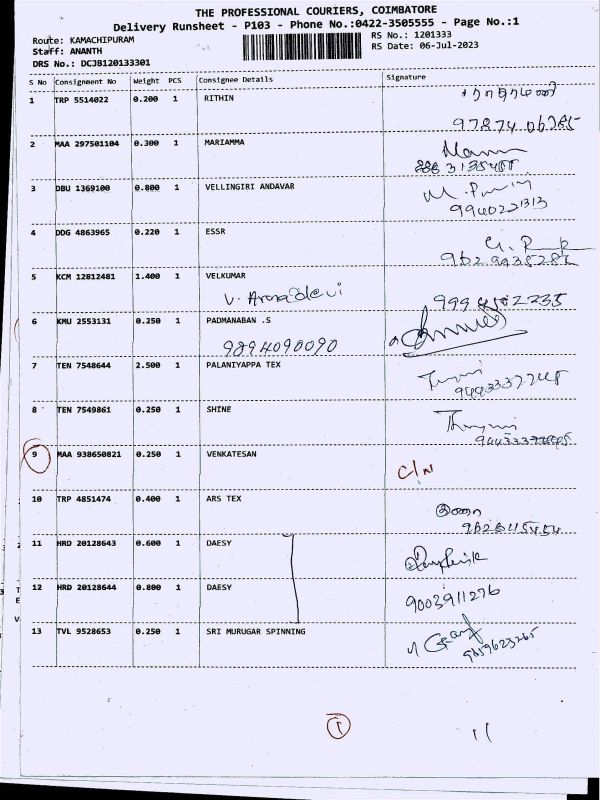 THE PROFESSIONAL COURIERS, COIMBATORE
Delivery Runsheet - P103 - Phone No.:0422-3505555 - Page No.:1
Route: KAMACHIPURAM
RS No.: 1201333
Staff: ANANTH
RS Date: 06-Jul-2023
DRS No.: DCJB120133301
S No Consignment No Weight PCS Consignee Details Signature
1 TRP 5514022 0.200 1 RITHIN
97874 06785
2 MAA 297501104 0.300 1 MARIAMMA
3 DBU 1369100 0.800 1 VELLINGIRI ANDAVAR
9940221313
4 DDG 4863965 0.220 1 ESSR
5 KCM 12812481 1.400 1 VELKUMAR
6 KMU 2553131 0.250 1 PADMANABAN .S
9894090090
7 TEN 7548644 2.500 1 PALANIYAPPA TEX
8 TEN 7549861 0.250 1 SHINE
9 MAA 938650821 0.250 1 VENKATESAN C/N
10 TRP 4851474 0.400 1 ARS TEX
11 HRD 20128643 0.600 1 DAESY
12 HRD 20128644 0.800 1 DAESY 9003911276
13 TVL 9528653 0.250 1 SRI MURUGAR SPINNING
9659623265
1